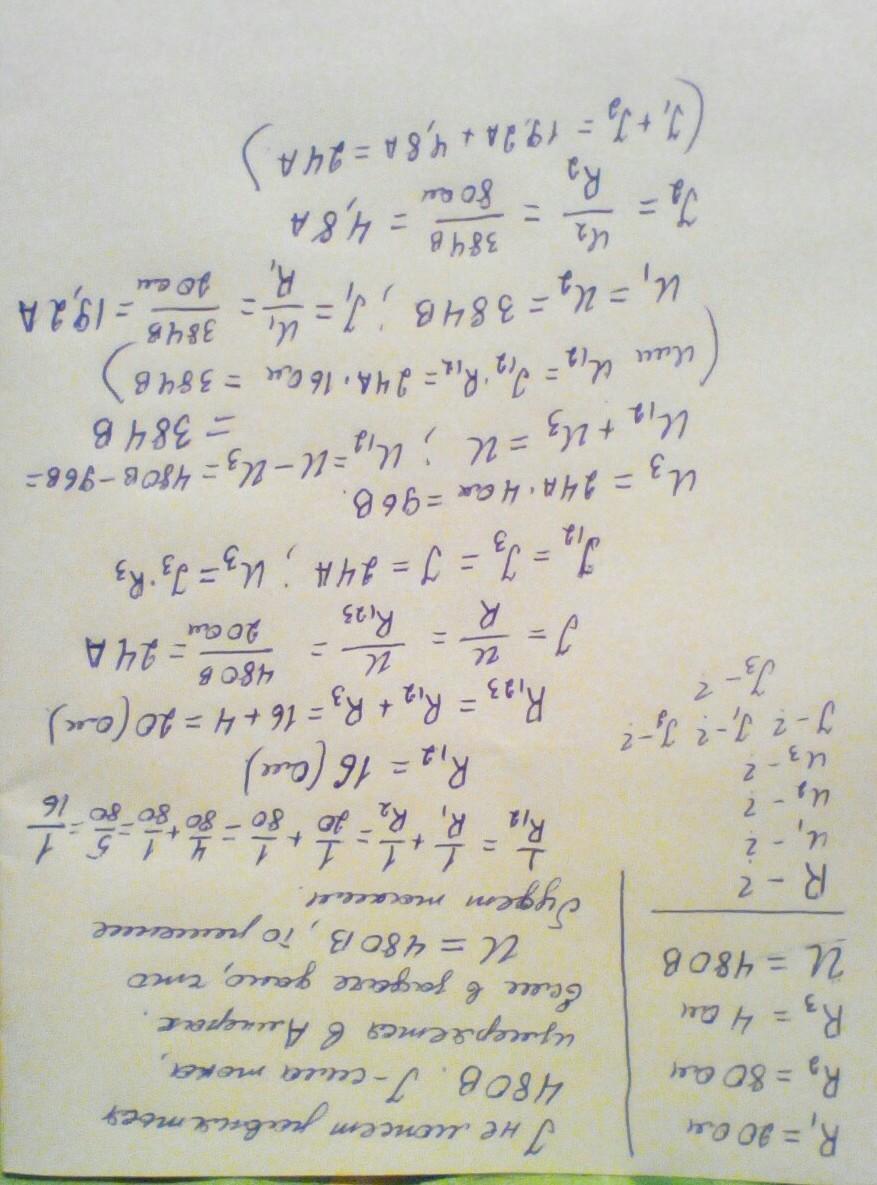 R₁ = 20 Ом
R₂ = 80 Ом
R₃ = 4 Ом
U = 480 В
R - ?
U₁ - ?
U₂ - ?
U₃ - ?
J - ? J₁ - ? J₂ - ?
J₃ - ?
J не может равняться
480 В. J - сила тока,
измеряется в Амперах.
Если в задаче дано, что
U = 480 В, то решение
будет таким.
1/R₁₂ = 1/R₁ + 1/R₂ = 1/20 + 1/80 = 4/80 + 1/80 = 5/80 = 1/16
R₁₂ = 16 (Ом)
R₁₂₃ = R₁₂ + R₃ = 16 + 4 = 20 (Ом)
J = U/R = U/R₁₂₃ = 480 В/20 Ом = 24 А
J₁₂ = J₃ = J = 24 А ; U₃ = J₃·R₃
U₃ = 24 А · 4 Ом = 96 В.
U₁₂ + U₃ = U ; U₁₂ = U - U₃ = 480 В - 96 В =
= 384 В
(или U₁₂ = J₁₂·R₁₂ = 24 А · 16 Ом = 384 В)
U₁ = U₂ = 384 В ; J₁ = U₁/R₁ = 384 В/20 Ом = 19,2 А
J₂ = U₂/R₂ = 384 В/80 Ом = 4,8 А
(J₁ + J₂ = 19,2 А + 4,8 А = 24 А)